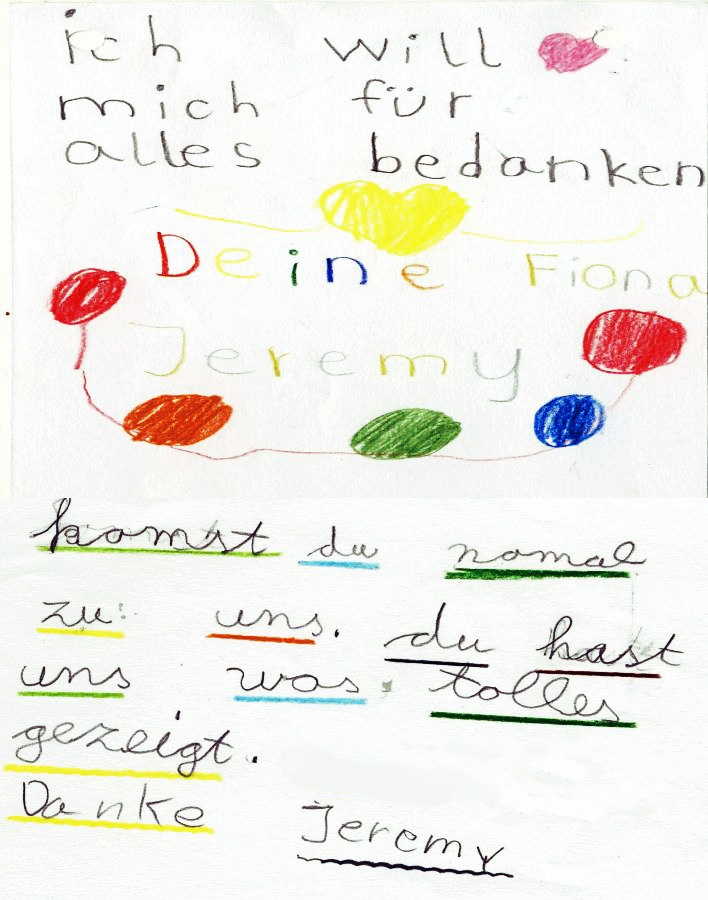 ich will
mich für
alles bedanken
Deine Fiona
Jeremy
komst du nomal
zu uns. du hast
uns was tolles
gezeigt.
Danke Jeremy